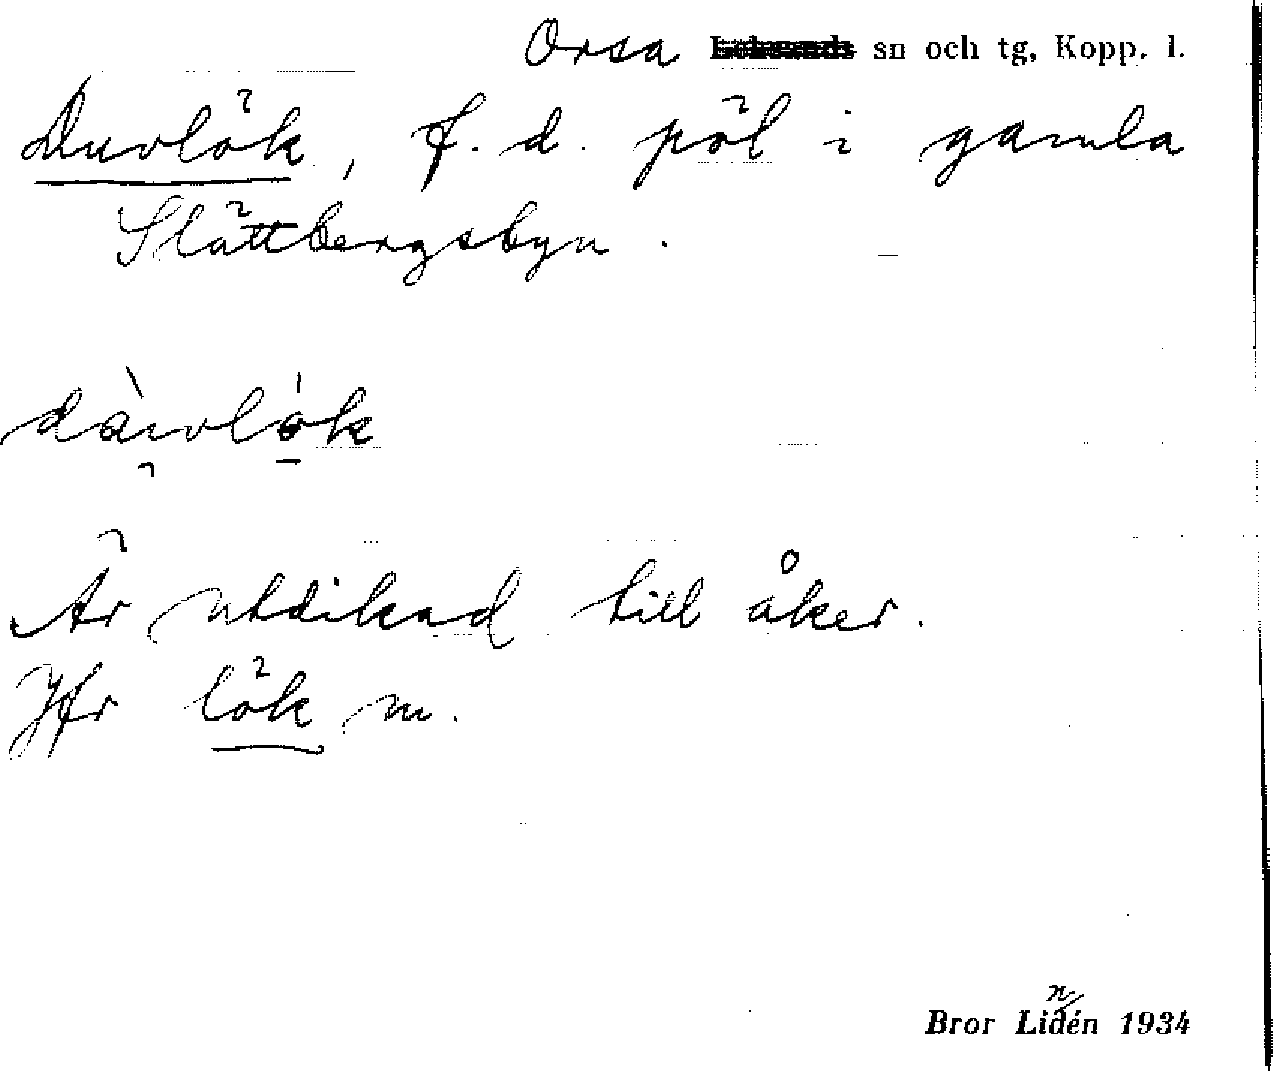 Orsa sn och tg, Kopp. l.
Duvlök, f. d. pöl i gamla
Slättbergsbyn.
dàuvlók
Är utdikad till åker.
Jfr lök m.
Bror Lidén 1934